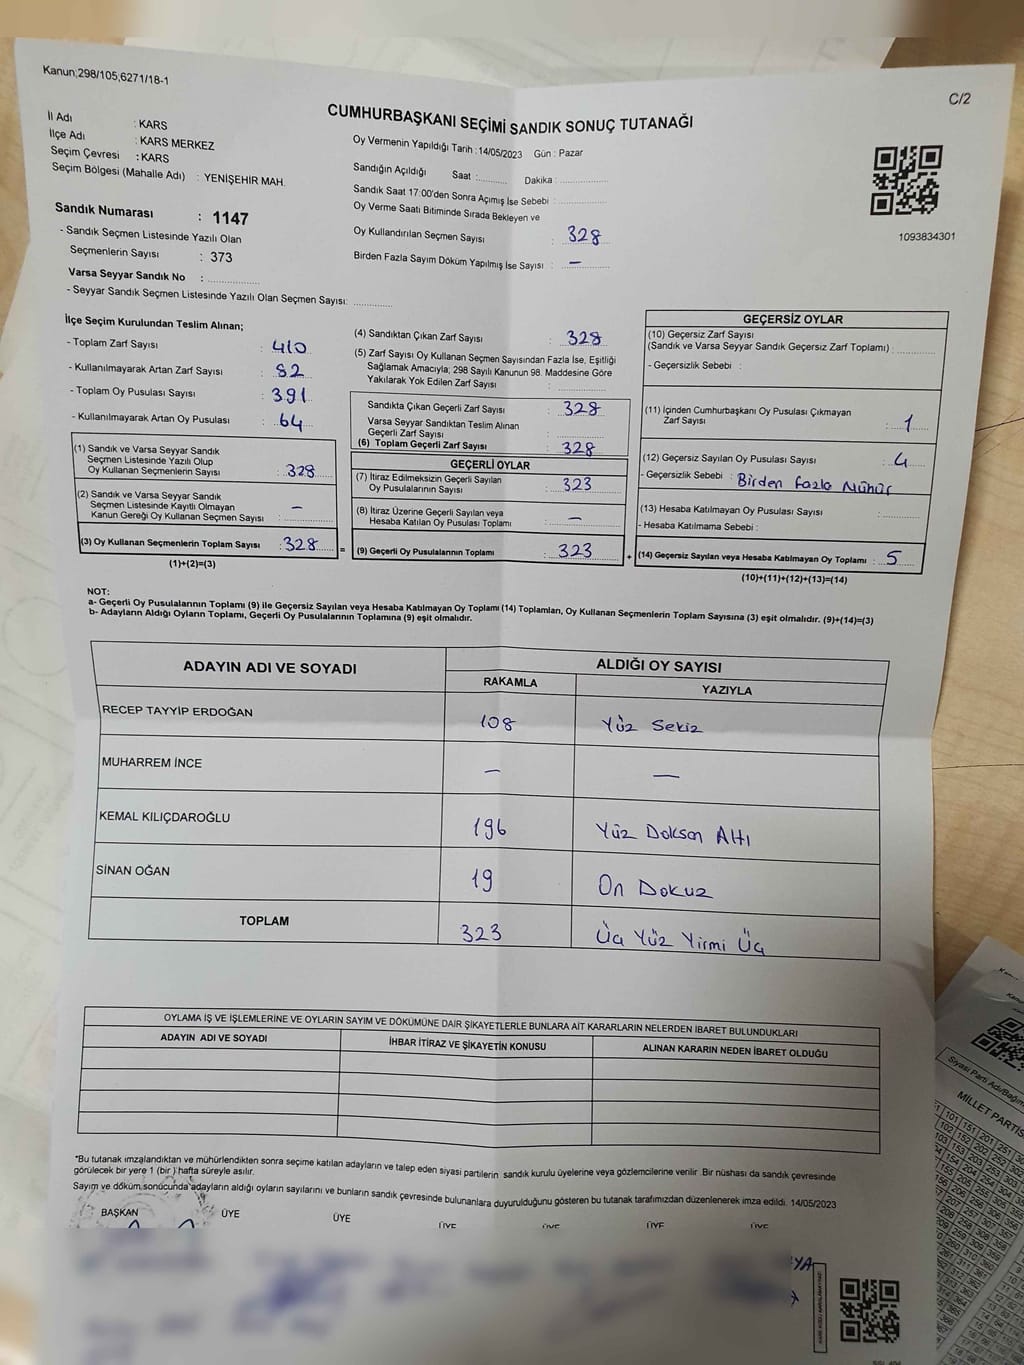 Kanun;298/105,6271/18-1
C/2
CUMHURBAŞKANI SEÇİMİ SANDIK SONUÇ TUTANAĞI
İl Adı : KARS
İlçe Adı : KARS MERKEZ
Seçim Çevresi : KARS
Seçim Bölgesi (Mahalle Adı) : YENİŞEHİR MAH.
Sandık Numarası : 1147
- Sandık Seçmen Listesinde Yazılı Olan
Seçmenlerin Sayısı : 373
Varsa Seyyar Sandık No : ..............
- Seyyar Sandık Seçmen Listesinde Yazılı Olan Seçmen Sayısı: ............
Oy Vermenin Yapıldığı Tarih :14/05/2023 Gün : Pazar
Sandığın Açıldığı Saat :......... Dakika :..............
Sandık Saat 17:00'den Sonra Açımış İse Sebebi : ..............
Oy Verme Saati Bitiminde Sırada Bekleyen ve
Oy Kullandırılan Seçmen Sayısı : 328
Birden Fazla Sayım Döküm Yapılmış İse Sayısı : —
1093834301
İlçe Seçim Kurulundan Teslim Alınan;
- Toplam Zarf Sayısı : 410
- Kullanılmayarak Artan Zarf Sayısı : 82
- Toplam Oy Pusulası Sayısı : 391
- Kullanılmayarak Artan Oy Pusulası : 64
(1) Sandık ve Varsa Seyyar Sandık
Seçmen Listesinde Yazılı Olup
Oy Kullanan Seçmenlerin Sayısı : 328
(2) Sandık ve Varsa Seyyar Sandık
Seçmen Listesinde Kayıtlı Olmayan
Kanun Gereği Oy Kullanan Seçmen Sayısı : —
(3) Oy Kullanan Seçmenlerin Toplam Sayısı : 328
(1)+(2)=(3)
(4) Sandıktan Çıkan Zarf Sayısı : 328
(5) Zarf Sayısı Oy Kullanan Seçmen Sayısından Fazla İse, Eşitliği
Sağlamak Amacıyla; 298 Sayılı Kanunun 98. Maddesine Göre
Yakılarak Yok Edilen Zarf Sayısı : ..............
Sandıkta Çıkan Geçerli Zarf Sayısı : 328
Varsa Seyyar Sandıktan Teslim Alınan
Geçerli Zarf Sayısı : ..............
(6) Toplam Geçerli Zarf Sayısı : 328
=
GEÇERLİ OYLAR
(7) İtiraz Edilmeksizin Geçerli Sayılan
Oy Pusulalarının Sayısı : 323
(8) İtiraz Üzerine Geçerli Sayılan veya
Hesaba Katılan Oy Pusulası Toplamı : —
(9) Geçerli Oy Pusulalarının Toplamı : 323
+
GEÇERSİZ OYLAR
(10) Geçersiz Zarf Sayısı
(Sandık ve Varsa Seyyar Sandık Geçersiz Zarf Toplamı) : ..........
- Geçersizlik Sebebi :
(11) İçinden Cumhurbaşkanı Oy Pusulası Çıkmayan
Zarf Sayısı : 1
(12) Geçersiz Sayılan Oy Pusulası Sayısı : 4
- Geçersizlik Sebebi : Birden fazla Mühür
(13) Hesaba Katılmayan Oy Pusulası Sayısı : ..........
- Hesaba Katılmama Sebebi :
(14) Geçersiz Sayılan veya Hesaba Katılmayan Oy Toplamı : 5
(10)+(11)+(12)+(13)=(14)
NOT:
a- Geçerli Oy Pusulalarının Toplamı (9) ile Geçersiz Sayılan veya Hesaba Katılmayan Oy Toplamı (14) Toplamları, Oy Kullanan Seçmenlerin Toplam Sayısına (3) eşit olmalıdır. (9)+(14)=(3)
b- Adayların Aldığı Oyların Toplamı, Geçerli Oy Pusulalarının Toplamına (9) eşit olmalıdır.
ADAYIN ADI VE SOYADI
ALDIĞI OY SAYISI
RAKAMLA YAZIYLA
RECEP TAYYİP ERDOĞAN 108 Yüz Sekiz
MUHARREM İNCE — —
KEMAL KILIÇDAROĞLU 196 Yüz Doksan Altı
SİNAN OĞAN 19 On Dokuz
TOPLAM 323 Üç Yüz Yirmi Üç
OYLAMA İŞ VE İŞLEMLERİNE VE OYLARIN SAYIM VE DÖKÜMÜNE DAİR ŞİKAYETLERLE BUNLARA AİT KARARLARIN NELERDEN İBARET BULUNDUKLARI
ADAYIN ADI VE SOYADI İHBAR İTİRAZ VE ŞİKAYETİN KONUSU ALINAN KARARIN NEDEN İBARET OLDUĞU
*Bu tutanak imzalandıktan ve mühürlendikten sonra seçime katılan adayların ve talep eden siyasi partilerin sandık kurulu üyelerine veya gözlemcilerine verilir. Bir nüshası da sandık çevresinde
görülecek bir yere 1 (bir ) hafta süreyle asılır.
Sayım ve döküm sonucunda adayların aldığı oyların sayılarını ve bunların sandık çevresinde bulunanlara duyurulduğunu gösteren bu tutanak tarafımızdan düzenlenerek imza edildi. 14/05/2023
BAŞKAN ÜYE ÜYE ÜYE ÜYE ÜYE ÜYE
Siyasi Parti Adı/Bağım
MİLLET PARTİS